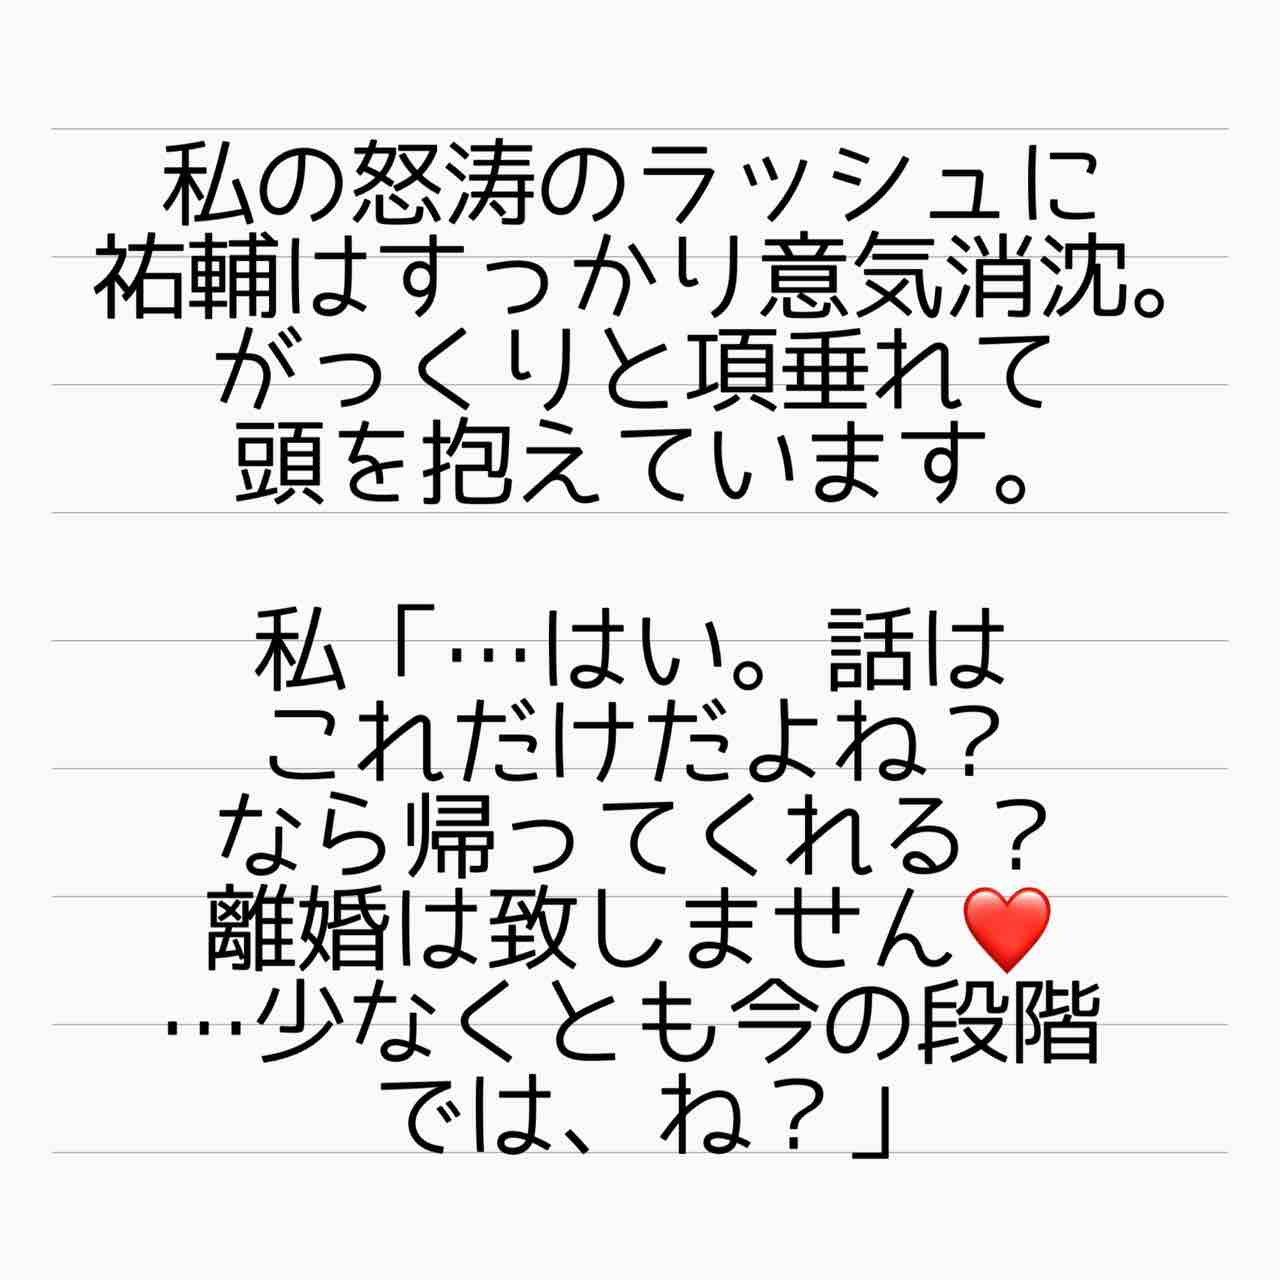 私の怒涛のラッシュに
祐輔はすっかり意気消沈。
がっくりと項垂れて
頭を抱えています。
私「…はい。話は
これだけだよね？
なら帰ってくれる？
離婚は致しません❤️
…少なくとも今の段階
では、ね？」